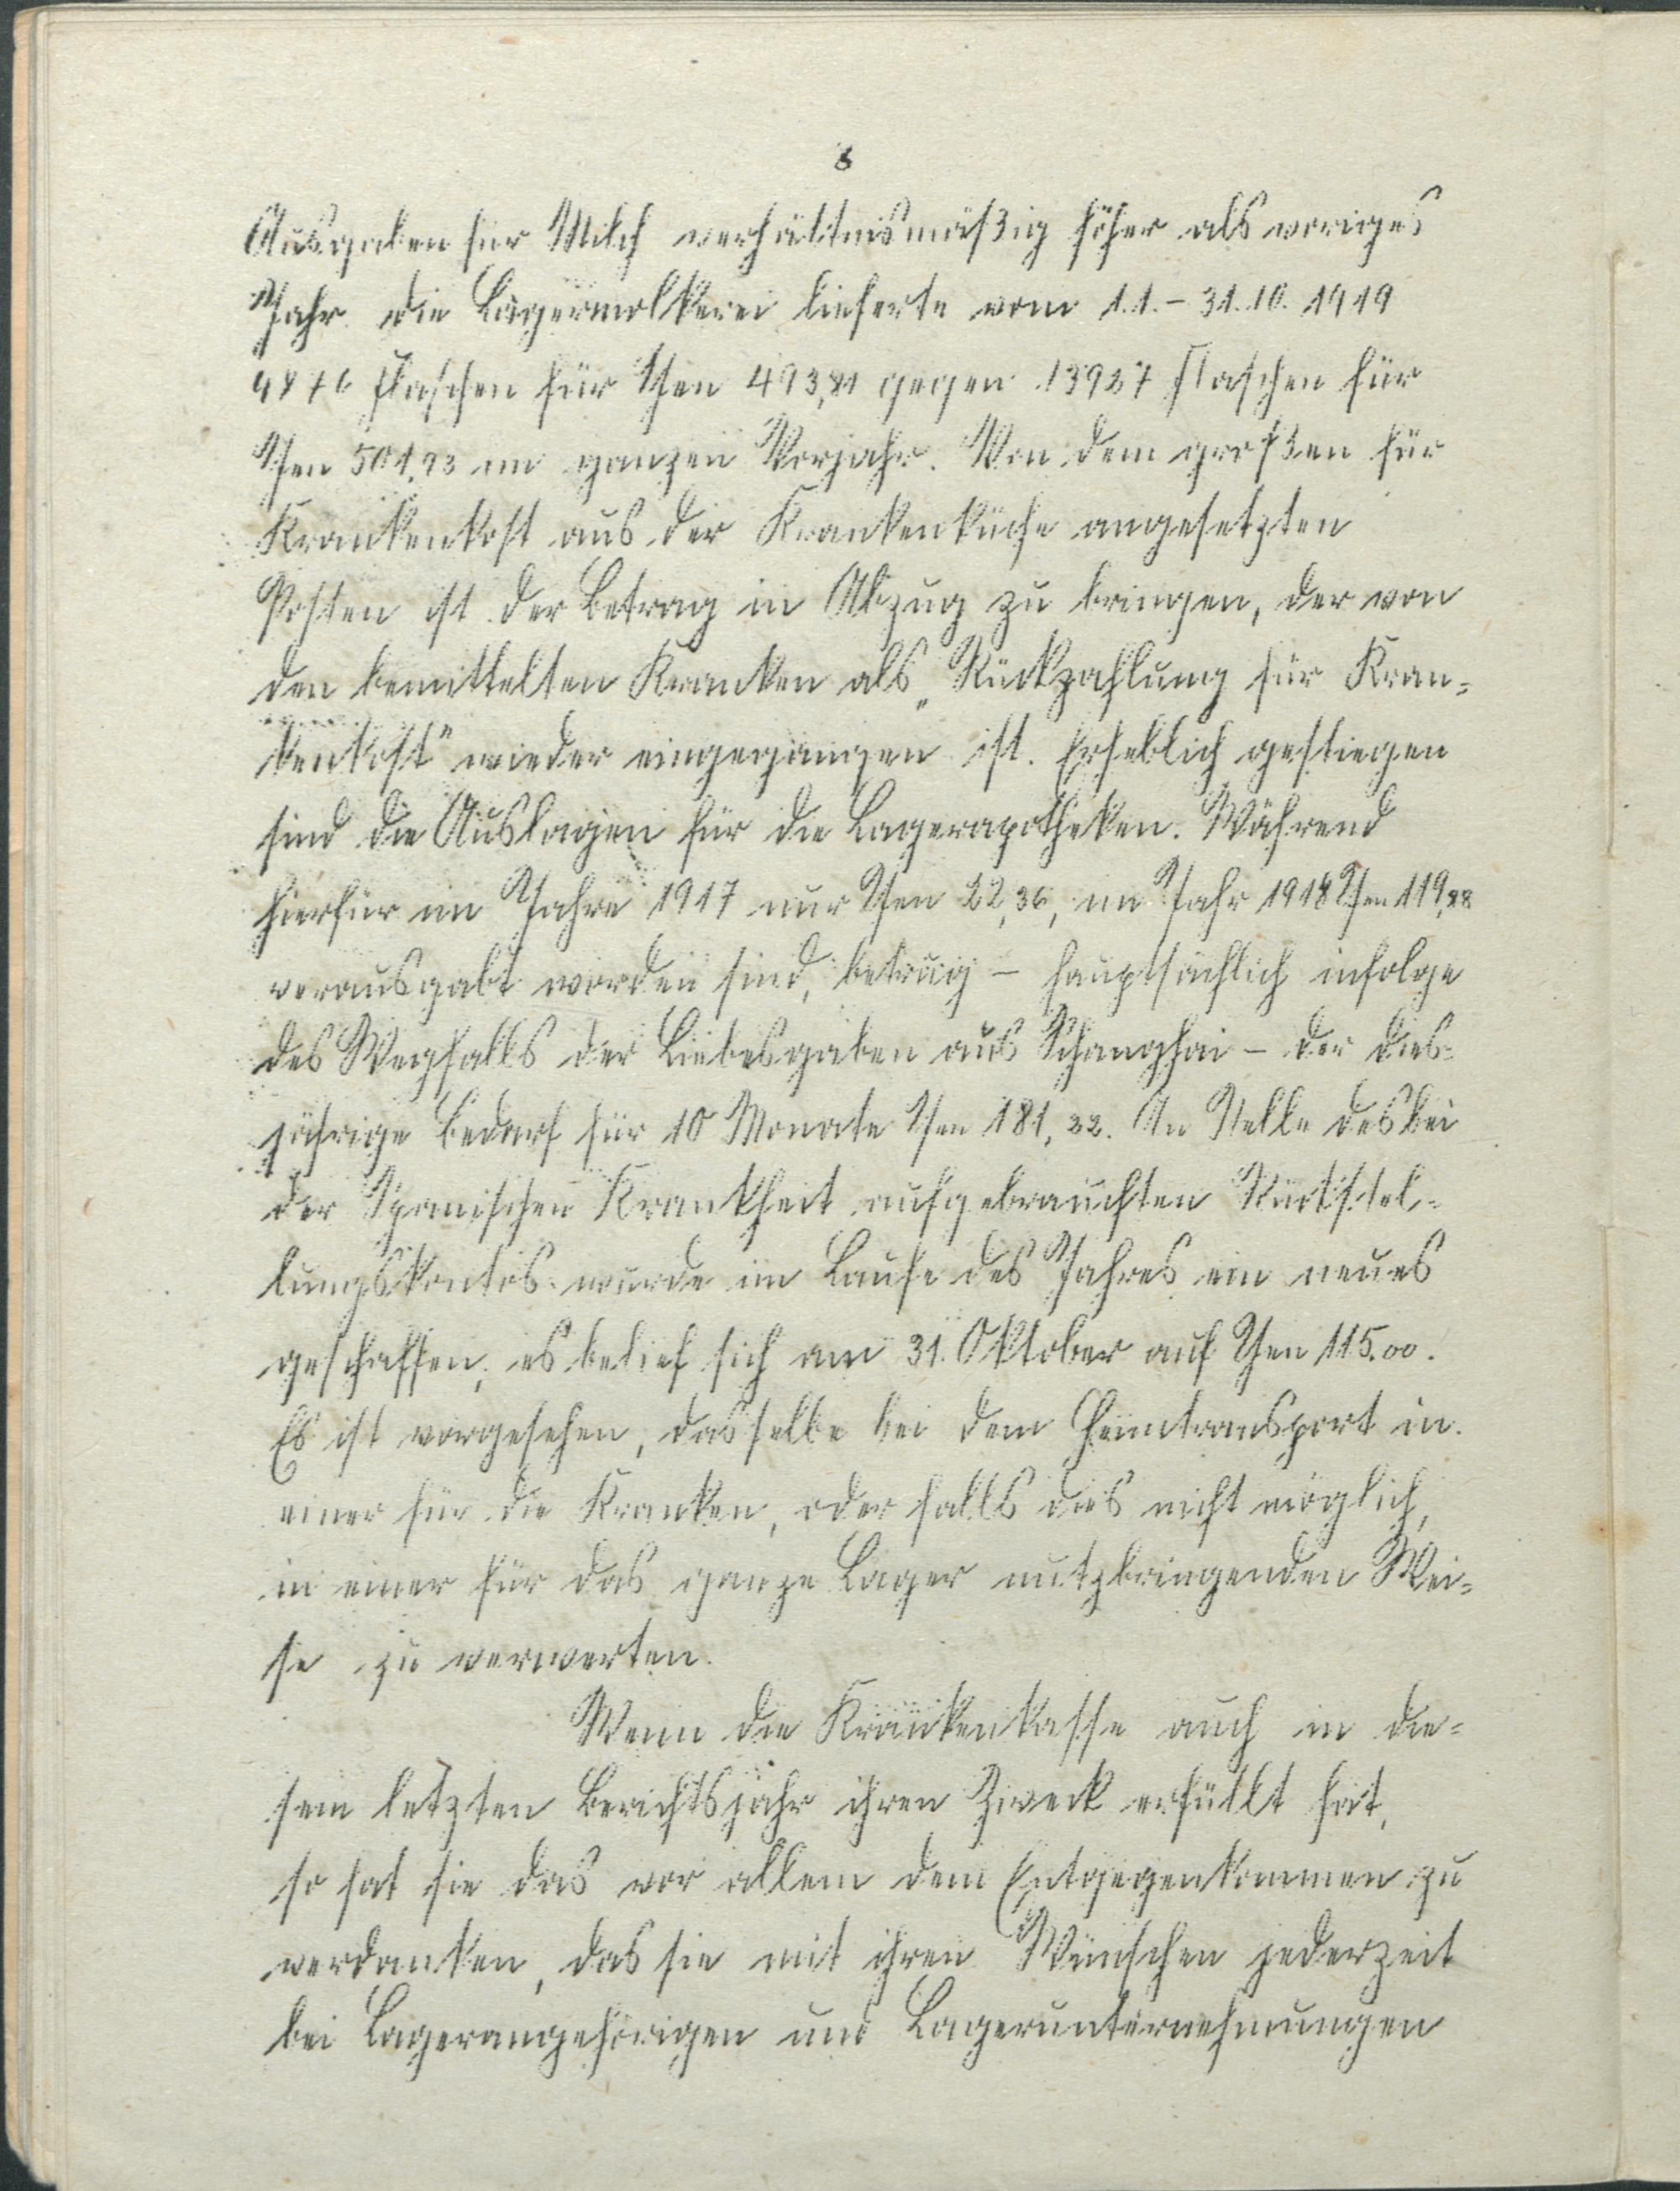 8
Ausgaben für Milch verhältnismäßig höher als voriges
Jahr. die Lagermolkerei lieferte vom 1.1.- 31.10. 1919
Flaschen für Yen 493,81 gegen 13927 Flaschen für
Yen 501,93 im ganzen Vorjahr. Von dem großen für
Krankenkost aus der Krankenküche angesetzten
Posten ist der Betrag in Abzug zu bringen, der von
den bemittelten Kranken als „Rückzahlung für Kran=
kenkost" wieder eingegangen ist. Erheblich gestiegen
sind die Auslagen für die Lagerapotheken. Während
hierfür im Jahre 1917 nur Yen 22,36, im Jahr 1918 Yen 119,88
verausgabt worden sind, betrug - hauptsächlich infolge
des Wegfalls der Liebesgaben aus Schanghai - der dies=
jährige Bedarf für 10 Monate Yen 181,32. An Stelle des bei
der Spanischen Krankheit aufgebrauchten Rückstel=
lungskontos wurde im Laufe des Jahres ein neues
geschaffen; es belief sich am 31. Oktober auf Yen 115.00.
Es ist vorgesehen, dasselbe bei dem Heimtransport in
einer für die Kranken, oder falls dies nicht möglich,
in einer für das ganze Lager nutzbringenden Wei=
se zu verwerten.
Wenn die Krankenkasse auch in die=
sem letzten Berichtsjahr ihren Zweck erfüllt hat,
so hat sie das vor allem dem Entgegenkommen zu
verdanken, das sie mit ihren Wünschen jederzeit
bei Lagerangehörigen und Lagerunternehmungen